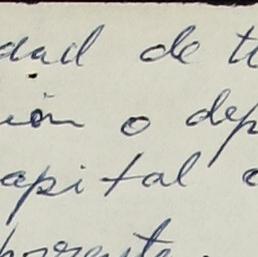 dad de t
ión o dep
apital